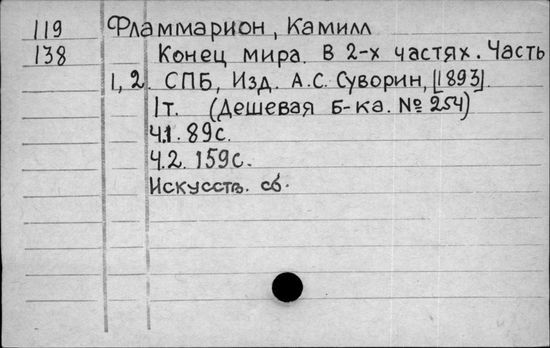 119 Фламмарион, Камилл
138 Конец мира. В 2-х частях. Часть
1,2. СПБ, Изд. А.С. Суворин, [1893].
1т. (Дешевая б-ка. № 254)
Ч.1. 89с.
Ч.2. 159с.
Искусств. сб.